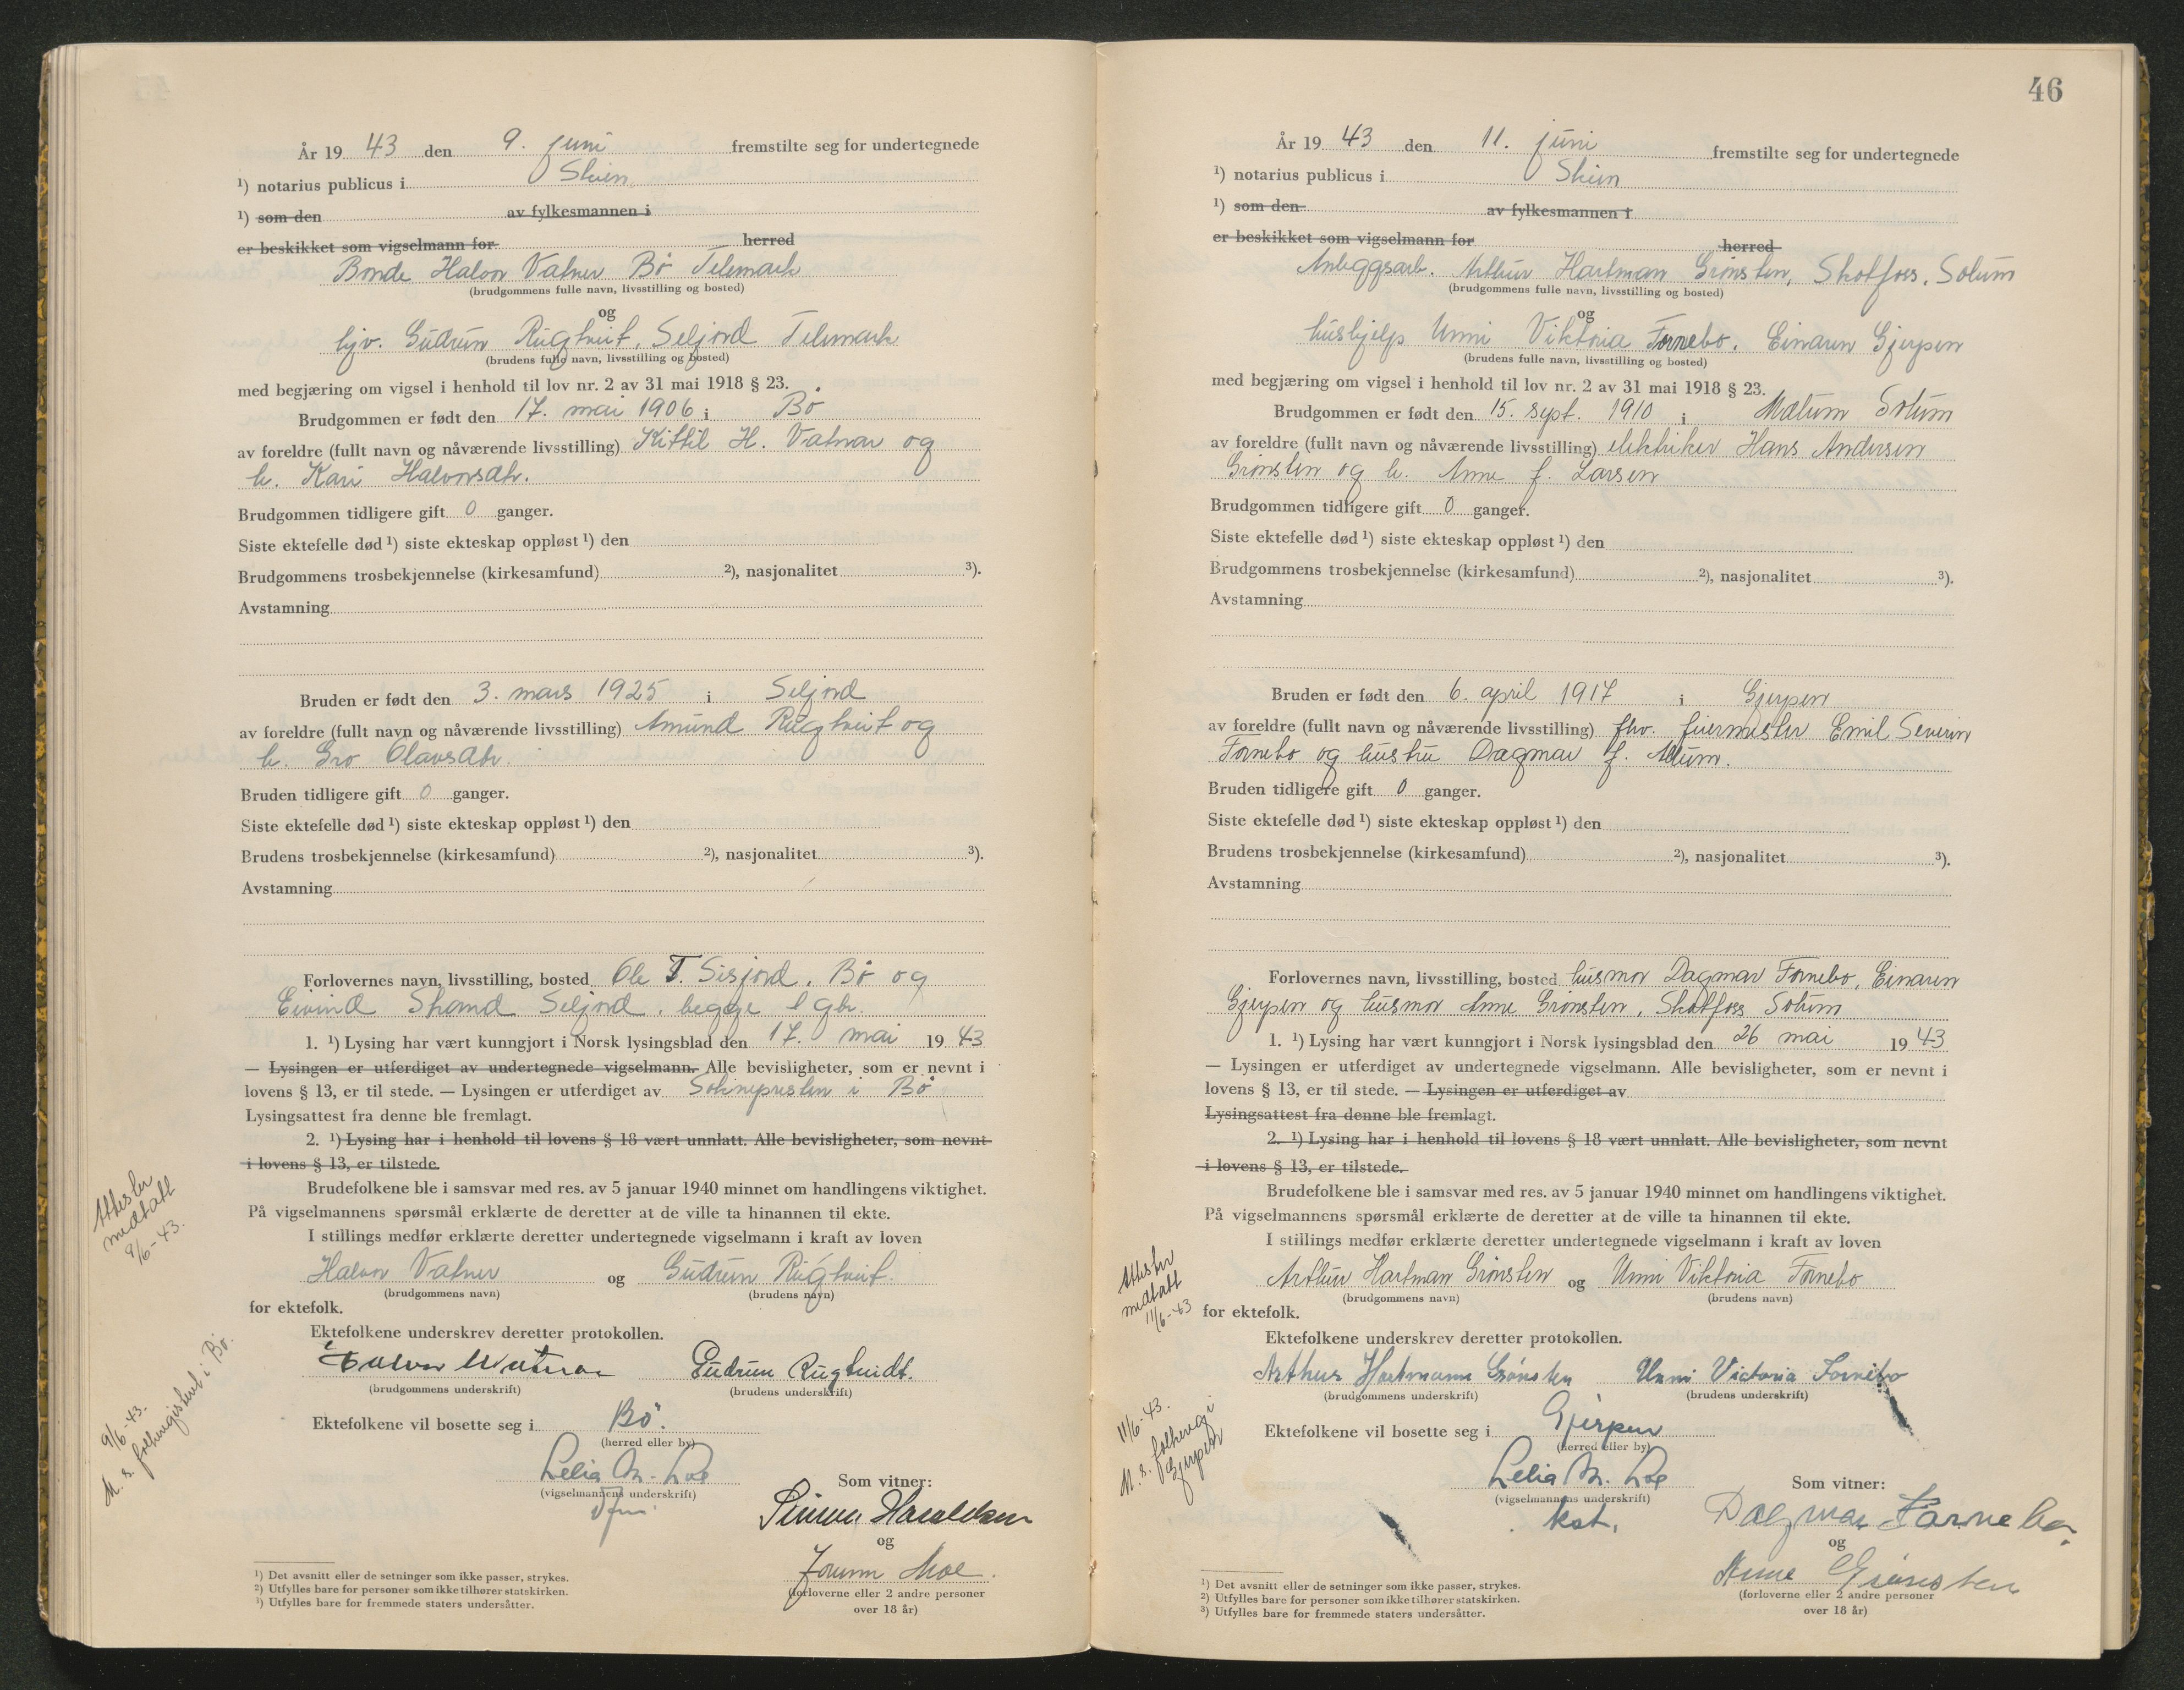 År 19 43 den 9. juni fremstilte seg for undertegnede
¹) notarius publicus i Skien
¹) som den av fylkesmannen i
er beskikket som vigselmann for herred
Bonde Halvor Vatner Bø Telemark
(brudgommens fulle navn, livsstilling og bosted)
og
hjv. Gudrun Rugtveit, Seljord Telemark
(brudens fulle navn, livsstilling og bosted)
med begjæring om vigsel i henhold til lov nr. 2 av 31 mai 1918 § 23.
Brudgommen er født den 17. mai 1906 i Bø
av foreldre (fullt navn og nåværende livsstilling) Kittil H. Vatnar og
h. Kari Halvorsdtr.
Brudgommen tidligere gift 0 ganger.
Siste ektefelle død ¹) siste ekteskap oppløst ¹) den
Brudgommens trosbekjennelse (kirkesamfund) ²), nasjonalitet ³).
Avstamning
Bruden er født den 3. mars 1925 i Seljord
av foreldre (fullt navn og nåværende livsstilling) Amund Rugtveit og
h. Gro Olavsdtr.
Bruden tidligere gift 0 ganger.
Siste ektefelle død ¹) siste ekteskap oppløst ¹) den
Brudens trosbekjennelse (kirkesamfund) ²), nasjonalitet ³).
Avstamning
Forlovernes navn, livsstilling, bosted Ole T. Sisjord, Bø og
Eivind Strand Seljord, begge l gbr.
1. ¹) Lysing har vært kunngjort i Norsk lysingsblad den 17. mai 19 43
— Lysingen er utferdiget av undertegnede vigselmann. Alle bevisligheter, som er nevnt i
lovens § 13, er til stede. — Lysingen er utferdiget av Soknepresten i Bø
Lysingsattest fra denne ble fremlagt.
2. ¹) Lysing har i henhold til lovens § 18 vært unnlatt. Alle bevisligheter, som nevnt
i lovens § 13, er tilstede.
Brudefolkene ble i samsvar med res. av 5 januar 1940 minnet om handlingens viktighet.
På vigselmannens spørsmål erklærte de deretter at de ville ta hinannen til ekte.
I stillings medfør erklærte deretter undertegnede vigselmann i kraft av loven
Halvor Vatner og Gudrun Rugtveit.
(brudgommens navn) (brudens navn)
for ektefolk.
Ektefolkene underskrev deretter protokollen.
Halvor Gudrun Rugtveidt.
(brudgommens underskrift) (brudens underskrift)
Ektefolkene vil bosette seg i Bø.
(herred eller by)
Lelia M. Loe
(vigselmannens underskrift)
Som vitner:
Simon Haraldsen
og
Jorunn Moe.
(forloverne eller 2 andre personer
over 18 år)
¹) Det avsnitt eller de setninger som ikke passer, strykes.
²) Utfylles bare for personer som ikke tilhører statskirken.
³) Utfylles bare for fremmede staters undersåtter.
Attester
mottatt
9/6-43.
9/6-43.
M. s. folkeregisteret i Bø.
46
År 19 43 den 11. juni fremstilte seg for undertegnede
¹) notarius publicus i Skien
¹) som den av fylkesmannen i
er beskikket som vigselmann for herred
Anleggsarb. Arthur Hartman Grønsten, Skotfoss, Solum
(brudgommens fulle navn, livsstilling og bosted)
og
hushjelp Unni Viktoria Fornebo, Einaren Gjerpen
(brudens fulle navn, livsstilling og bosted)
med begjæring om vigsel i henhold til lov nr. 2 av 31 mai 1918 § 23.
Brudgommen er født den 15. sept. 1910 i Mælum Solum
av foreldre (fullt navn og nåværende livsstilling) elektriker Hans Andersen
Grønsten og h. Anne f. Larsen
Brudgommen tidligere gift 0 ganger.
Siste ektefelle død ¹) siste ekteskap oppløst ¹) den
Brudgommens trosbekjennelse (kirkesamfund) ²), nasjonalitet ³).
Avstamning
Bruden er født den 6. april 1917 i Gjerpen
av foreldre (fullt navn og nåværende livsstilling) fhv. feiermester Emil Severin
Fornebo og hustru Dagmar f.
Bruden tidligere gift 0 ganger.
Siste ektefelle død ¹) siste ekteskap oppløst ¹) den
Brudens trosbekjennelse (kirkesamfund) ²), nasjonalitet ³).
Avstamning
Forlovernes navn, livsstilling, bosted husmor Dagmar Fornebo, Einaren
Gjerpen og husmor Anne Grønsten, Skotfoss Solum
1. ¹) Lysing har vært kunngjort i Norsk lysingsblad den 26 mai 19 43
— Lysingen er utferdiget av undertegnede vigselmann. Alle bevisligheter, som er nevnt i
lovens § 13, er til stede. — Lysingen er utferdiget av
Lysingsattest fra denne ble fremlagt.
2. ¹) Lysing har i henhold til lovens § 18 vært unnlatt. Alle bevisligheter, som nevnt
i lovens § 13, er tilstede.
Brudefolkene ble i samsvar med res. av 5 januar 1940 minnet om handlingens viktighet.
På vigselmannens spørsmål erklærte de deretter at de ville ta hinannen til ekte.
I stillings medfør erklærte deretter undertegnede vigselmann i kraft av loven
Arthur Hartman Grønsten og Unni Viktoria Fornebo
(brudgommens navn) (brudens navn)
for ektefolk.
Ektefolkene underskrev deretter protokollen.
Arthur Hartmann Grönsten Unni Victoria Fornebo
(brudgommens underskrift) (brudens underskrift)
Ektefolkene vil bosette seg i Gjerpen
(herred eller by)
Lelia M. Loe
(vigselmannens underskrift)
kst.
Som vitner:
Dagmar Fornebo.
og
Anne Grönsten
(forloverne eller 2 andre personer
over 18 år)
¹) Det avsnitt eller de setninger som ikke passer, strykes.
²) Utfylles bare for personer som ikke tilhører statskirken.
³) Utfylles bare for fremmede staters undersåtter.
Attester
mottatt
11/6-43
11/6-43.
M. s. folkereg i
Gjerpen